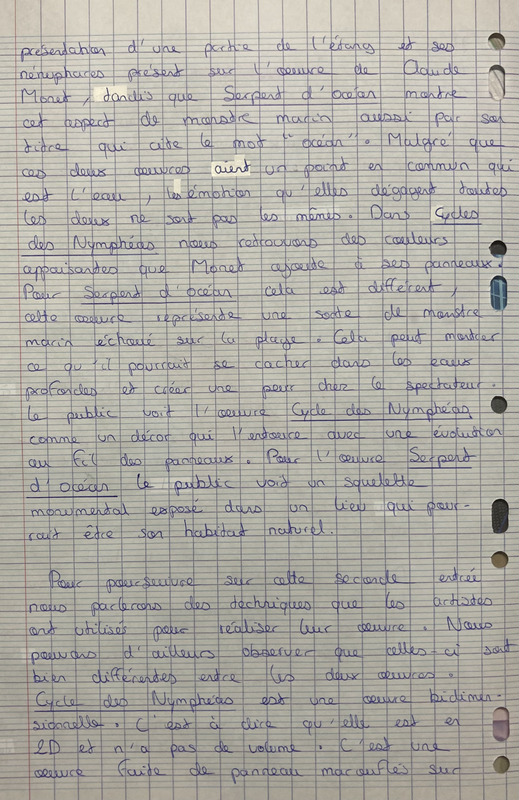 présentation d'une partie de l'étang et ses
nénuphares présent sur l'oeuvre de Claude
Monet, tandis que Serpent d'océan montre
cet aspect de monstre marin aussi par son
titre qui cite le mot "océan". Malgré que
ces deux oeuvres aient un point en commun qui
est l'eau, les émotion qu'elles dégagent toutes
les deux ne sont pas les mêmes. Dans Cycles
des Nymphéas nous retrouvons des couleurs
appaisantes que Monet ajoute à ses panneaux.
Pour Serpent d'océan cela est différent,
cette oeuvre représente une sorte de monstre
marin échoué sur la plage. Cela peut montrer
ce qu'il pourrait se cacher dans les eaux
profondes et créer une peur chez le spectateur.
Le public voit l'oeuvre Cycle des Nymphéas
comme un décor qui l'entoure avec une évolution
au fil des panneaux. Pour l'oeuvre Serpent
d'océan le public voit un squelette
monumental exposé dans un lieu qui pour-
rait être son habitat naturel.
Pour poursuivre sur cette seconde entrée
nous parlerons des techniques que les artistes
ont utilisés pour réaliser leur oeuvre. Nous
pouvons d'ailleurs observer que celles-ci sont
bien différentes entre les deux oeuvres.
Cycle des Nymphéas est une oeuvre bidimen-
sionnelle. C'est à dire qu'elle est en
2D et n'a pas de volume. C'est une
oeuvre faite de panneau marouflés sur